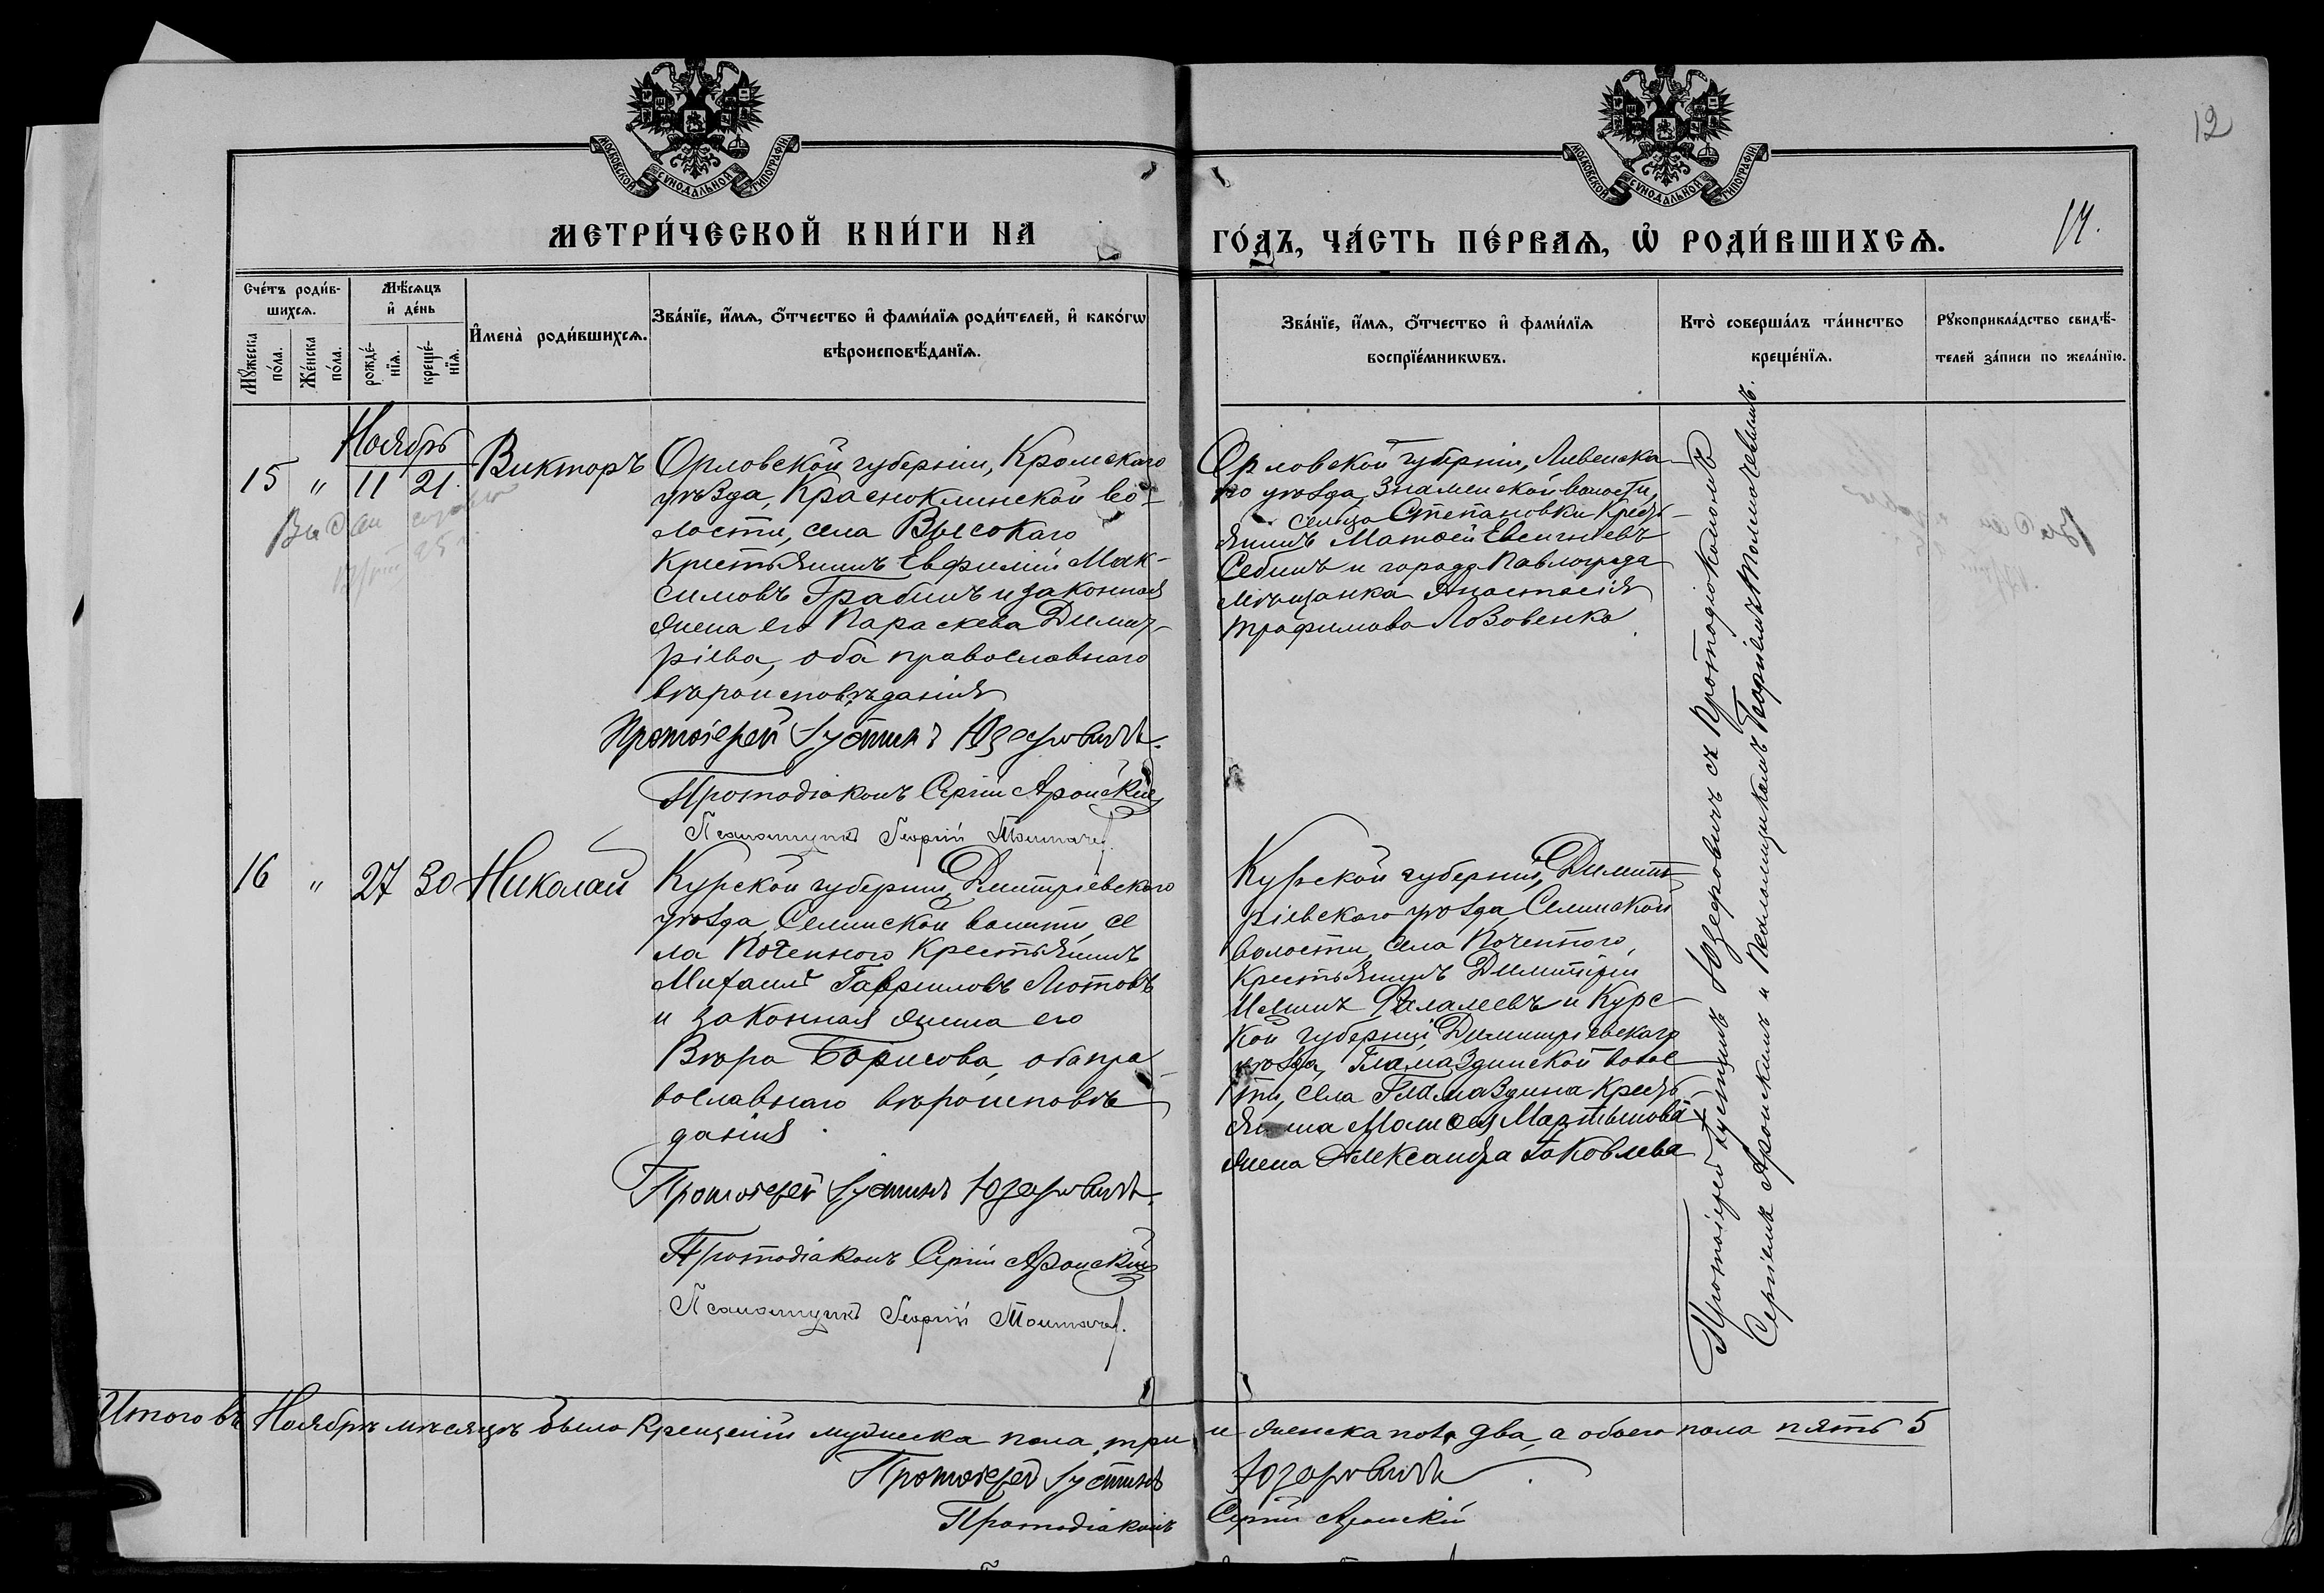 12
МОСКОВСКОЙ СѴНОДАЛЬНОЙ ТИПОГРАФІИ
МОСКОВСКОЙ СѴНОДАЛЬНОЙ ТИПОГРАФІИ
МЕТРИ́ЧЕСКОЙ КНИ́ГИ НА
ГО́ДЪ, ЧА́СТЬ ПЕ́РВАѦ, Ѡ҆ РОДИ́ВШИХСѦ.
Сче́тъ роди́в-
шихсѧ.
Мꙋ́жеска
по́ла.
Же́нска
по́ла.
Мѣ́сѧцъ
и҆ де́нь
рожде́-
нїѧ.
креще́-
нїѧ.
И҆мена̀ роди́вшихсѧ.
Зва́нїе, и҆́мѧ, ѻ҆́тчество и҆ фами́лїѧ роди́телей, и҆ како́гѡ
вѣроисповѣ́данїѧ.
Зва́нїе, и҆́мѧ, ѻ҆́тчество и҆ фами́лїѧ
воспрїе́мникѡвъ.
Кто̀ соверша́лъ та́инство
креще́нїѧ.
Рꙋкоприкла́дство свидѣ́-
телей за́писи по жела́нїю.
Ноябрь
15 " 11 21 Викторъ
Орловской губерніи, Кромскаго
уѣзда, Красноклинской во-
лости, села Высокаго
Крестьянинъ Евфимій Мак-
симовъ Грабинъ и законная
жена его Параскева Димит-
ріева, оба православнаго
вѣроисповѣданія
Протоіерей Іустинъ Юзефовичъ.
Протодіаконъ Сергій Аронскій
Псаломщикъ Георгій Толмачев.
Выдан
Орловской губерніи, Ливенска-
го уѣзда, Знаменской волости,
сельца Степановки Кресть-
янинъ Матѳей Евгеніевъ
Себинъ и города Павлограда
мѣщанка Анастасія
Трофимова Лозовенко
16 " 27 30 Николай
Курской губерніи, Дмитріевскаго
уѣзда, Селинской волости, се
ла Поченного Крестьянинъ
Михаилъ Гавриловъ Лютовъ
и законная жена его
Вѣра Борисова, оба пра-
вославнаго вѣроисповѣ-
данія.
Протоіерей Іустинъ Юзефовичъ.
Протодіаконъ Сергій Аронскій
Псаломщикъ Георгій Толмачев.
Курской губерніи, Димит-
ріевскаго уѣзда, Селинской
волости, села Поченного,
Крестьянинъ Димитрій
Ильинъ и Курс-
кой губерніи Димитріевскаго
уѣзда, Гламаздинской волос
ти, села Гламаздина Кресть
янина Моисея Мартынова
жена Александра Іаковлева
Протоіерей Іустинъ Юзефовичъ съ Протодіакономъ
Сергіемъ Аронскимъ и Псаломщикомъ Георгіемъ Толмачевымъ.
Итого въ Ноябрѣ мѣсяцѣ было крещеній мужеска пола три и женска пола два, а обоего пола пять 5
Протоіерей Іустинъ Юзефовичъ
Протодіаконъ Сергій Аронскій